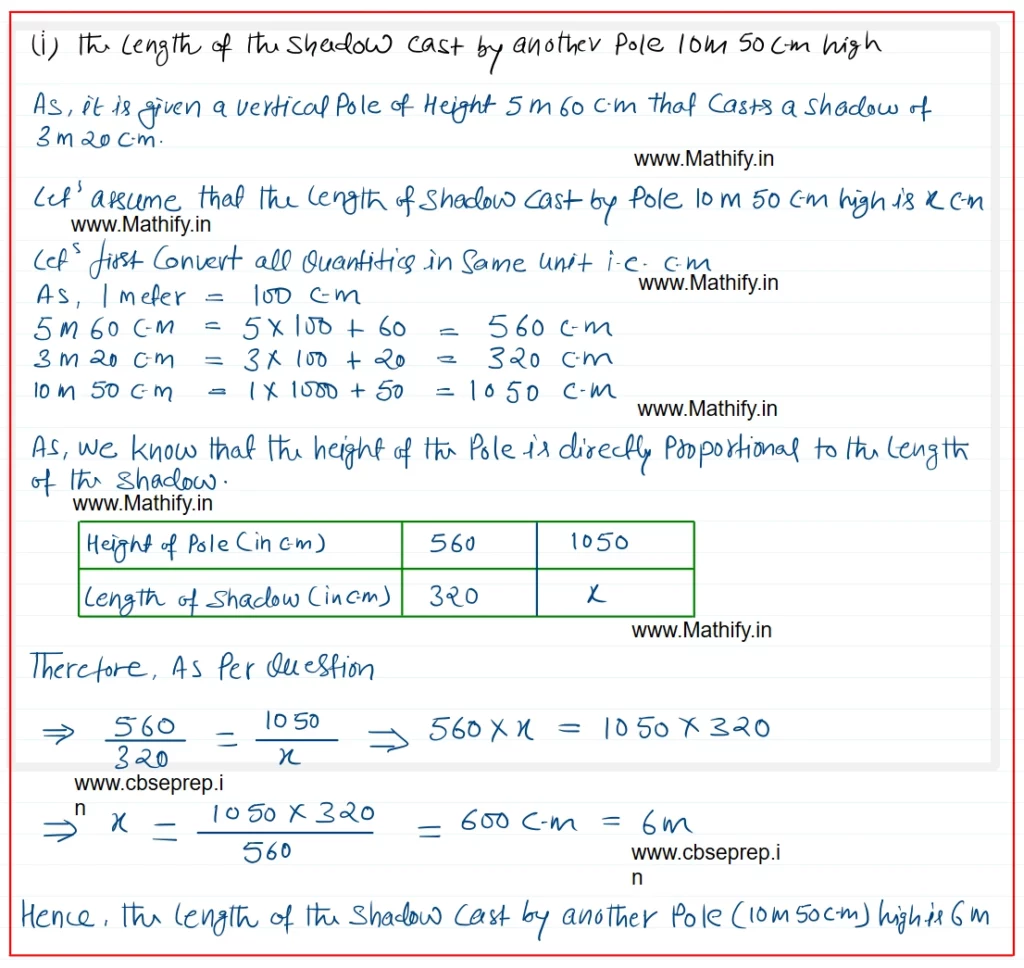 (i) The Length of the Shadow cast by another Pole 10m 50 c·m high
As, it is given a vertical Pole of Height 5 m 60 c·m that Casts a shadow of
3 m 20 c·m.
www.Mathify.in
Let's assume that the Length of Shadow cast by Pole 10 m 50 c·m high is x c·m
www.Mathify.in
Let's first Convert all Quantities in Same unit i·e· c·m
www.Mathify.in
As, 1 meter = 100 c·m
5 m 60 c·m = 5 × 100 + 60 = 560 c·m
3 m 20 c·m = 3 × 100 + 20 = 320 c·m
10 m 50 c·m = 1 × 1000 + 50 = 1050 c·m
www.Mathify.in
As, we know that the height of the Pole is directly Proportional to the Length
of the shadow.
www.Mathify.in
Height of Pole (in c·m) 560 1050
Length of Shadow (in c·m) 320 x
www.Mathify.in
Therefore, As Per Question
⇒ 560/320 = 1050/x ⇒ 560 × x = 1050 × 320
www.cbseprep.i
n
⇒ x = 1050 × 320/560 = 600 c·m = 6m
www.cbseprep.i
n
Hence, the Length of the Shadow Cast by another Pole (10m 50c·m) high is 6m